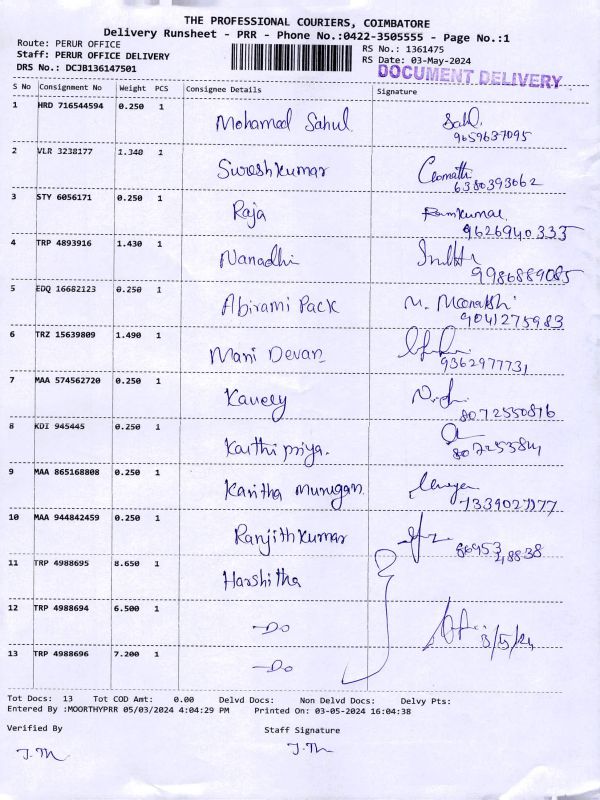 THE PROFESSIONAL COURIERS, COIMBATORE
Delivery Runsheet - PRR - Phone No.:0422-3505555 - Page No.:1
Route: PERUR OFFICE RS No.: 1361475
Staff: PERUR OFFICE DELIVERY RS Date: 03-May-2024
DRS No.: DCJB136147501 DOCUMENT DELIVERY
S No Consignment No Weight PCS Consignee Details Signature
1 HRD 716544594 0.250 1 Mohamed Sahul 9659637095
2 VLR 3238177 1.340 1 Sureshkumar 6380393062
3 STY 6056171 0.250 1 Raja Ramkumar 9626940335
4 TRP 4893916 1.430 1 Nanadhi 9986889085
5 EDQ 16682123 0.250 1 Abirami Pack M. Meenakshi 9041275983
6 TRZ 15639809 1.490 1 Mani Devan 9362977731
7 MAA 574562720 0.250 1 8072550816
8 KDI 945445 0.250 1 Karthi priya.
9 MAA 865168808 0.250 1 Kavitha Murugan
10 MAA 944842459 0.250 1 Ranjith Kumar
11 TRP 4988695 8.650 1 Harshitha
12 TRP 4988694 6.500 1 -Do 3/5/24
13 TRP 4988696 7.200 1 -Do
Tot Docs: 13 Tot COD Amt: 0.00 Delvd Docs: Non Delvd Docs: Delvy Pts:
Entered By :MOORTHYPRR 05/03/2024 4:04:29 PM Printed On: 03-05-2024 16:04:38
Verified By Staff Signature